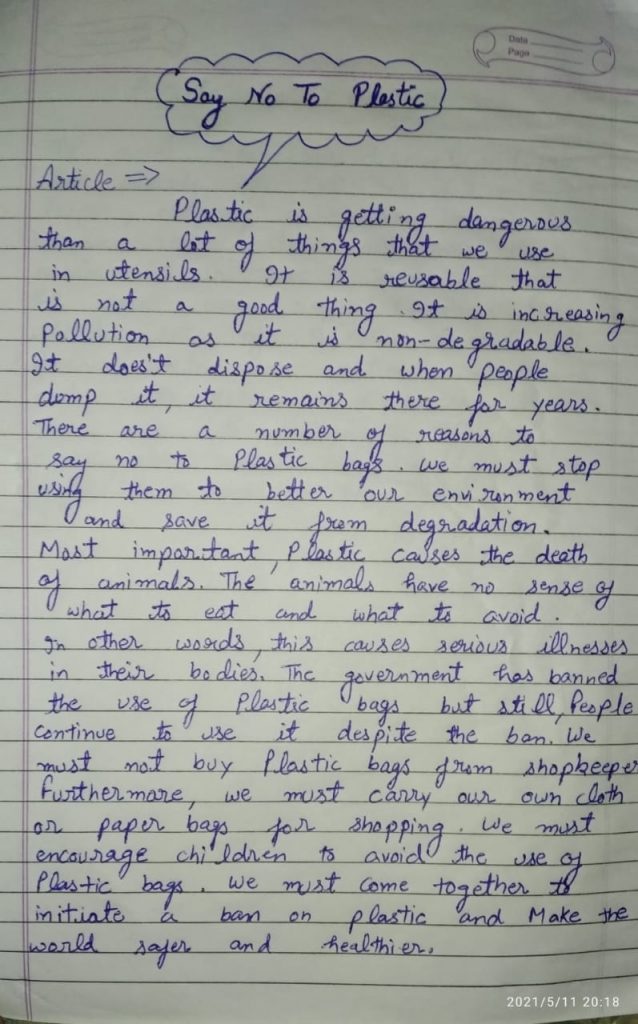 Date
Page
Say No To Plastic
Article =>
Plastic is getting dangerous
than a lot of things that we use
in utensils. It is reusable that
is not a good thing. It is increasing
Pollution as it is non-degradable.
It does't dispose and when people
dump it, it remains there for years.
There are a number of reasons to
say no to Plastic bags. We must stop
using them to better our environment
and save it from degradation.
Most important, Plastic causes the death
of animals. The animals have no sense of
what to eat and what to avoid.
In other words, this causes serious illnesses
in their bodies. The government has banned
the use of Plastic bags but still, People
continue to use it despite the ban. We
must not buy Plastic bags from shopkeeper
Furthermore, we must carry our own cloth
or paper bags for shopping. We must
encourage children to avoid the use of
Plastic bags. We must come together to
initiate a ban on plastic and Make the
world safer and healthier.
2021/5/11 20:18